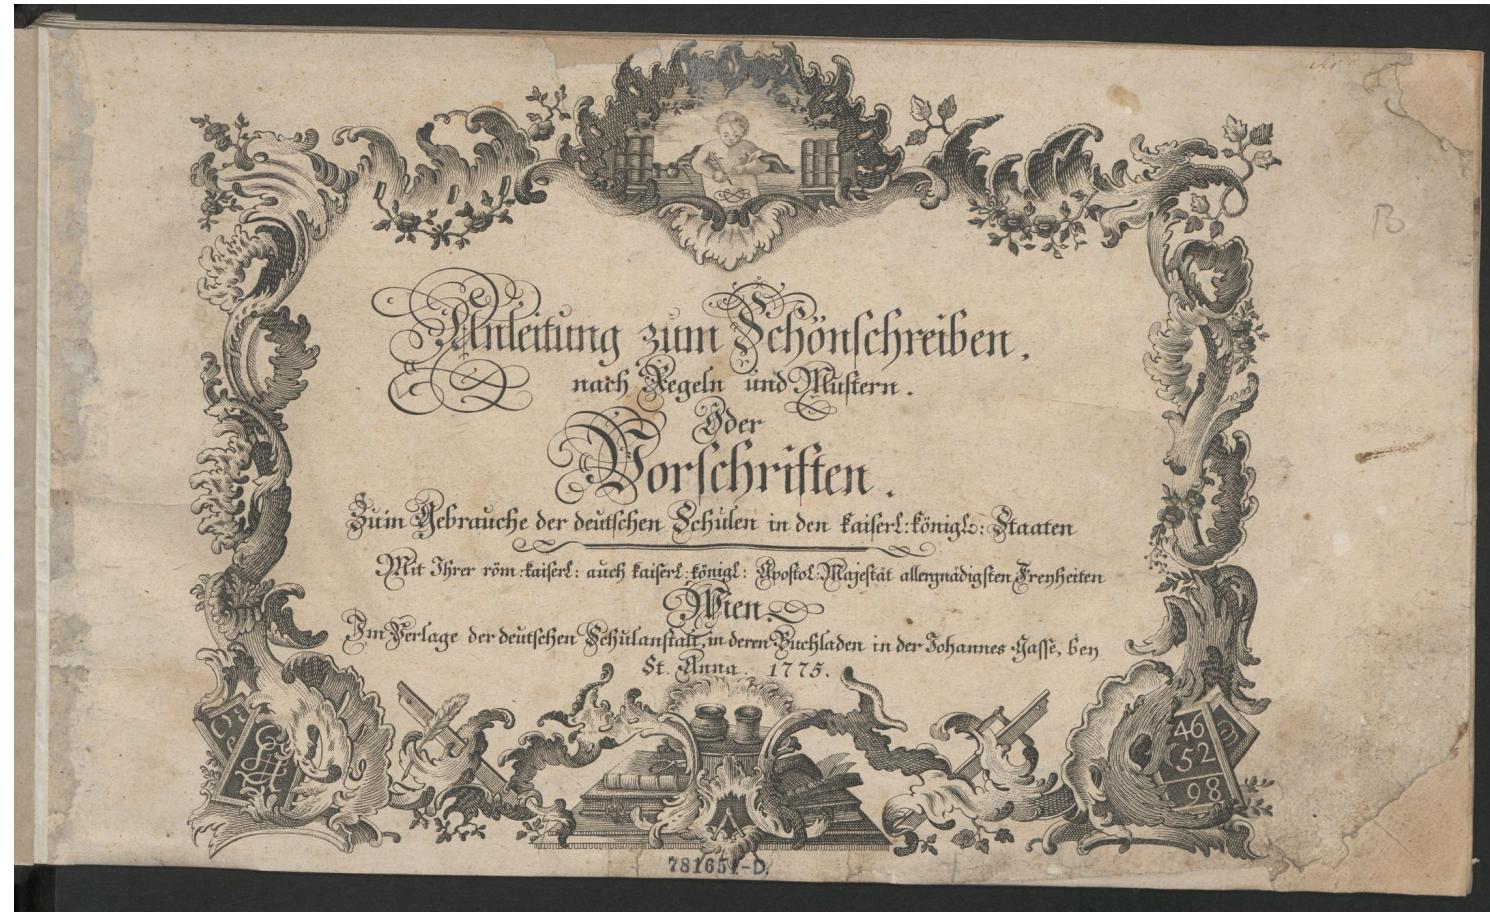 Anleitung zum Schönschreiben,
nach Regeln und Mustern.
Oder
Vorschriften.
Zum Gebrauche der deutschen Schulen in den kaiserl: königl: Staaten
Mit Ihrer röm: kaiserl: auch kaiserl: königl: Apostol: Majestät allergnädigsten Freyheiten
Wien
Im Verlage der deutschen Schulanstalt, in deren Buchladen in der Johannes Gasse, bey
St. Anna. 1775.
46
52
98
B